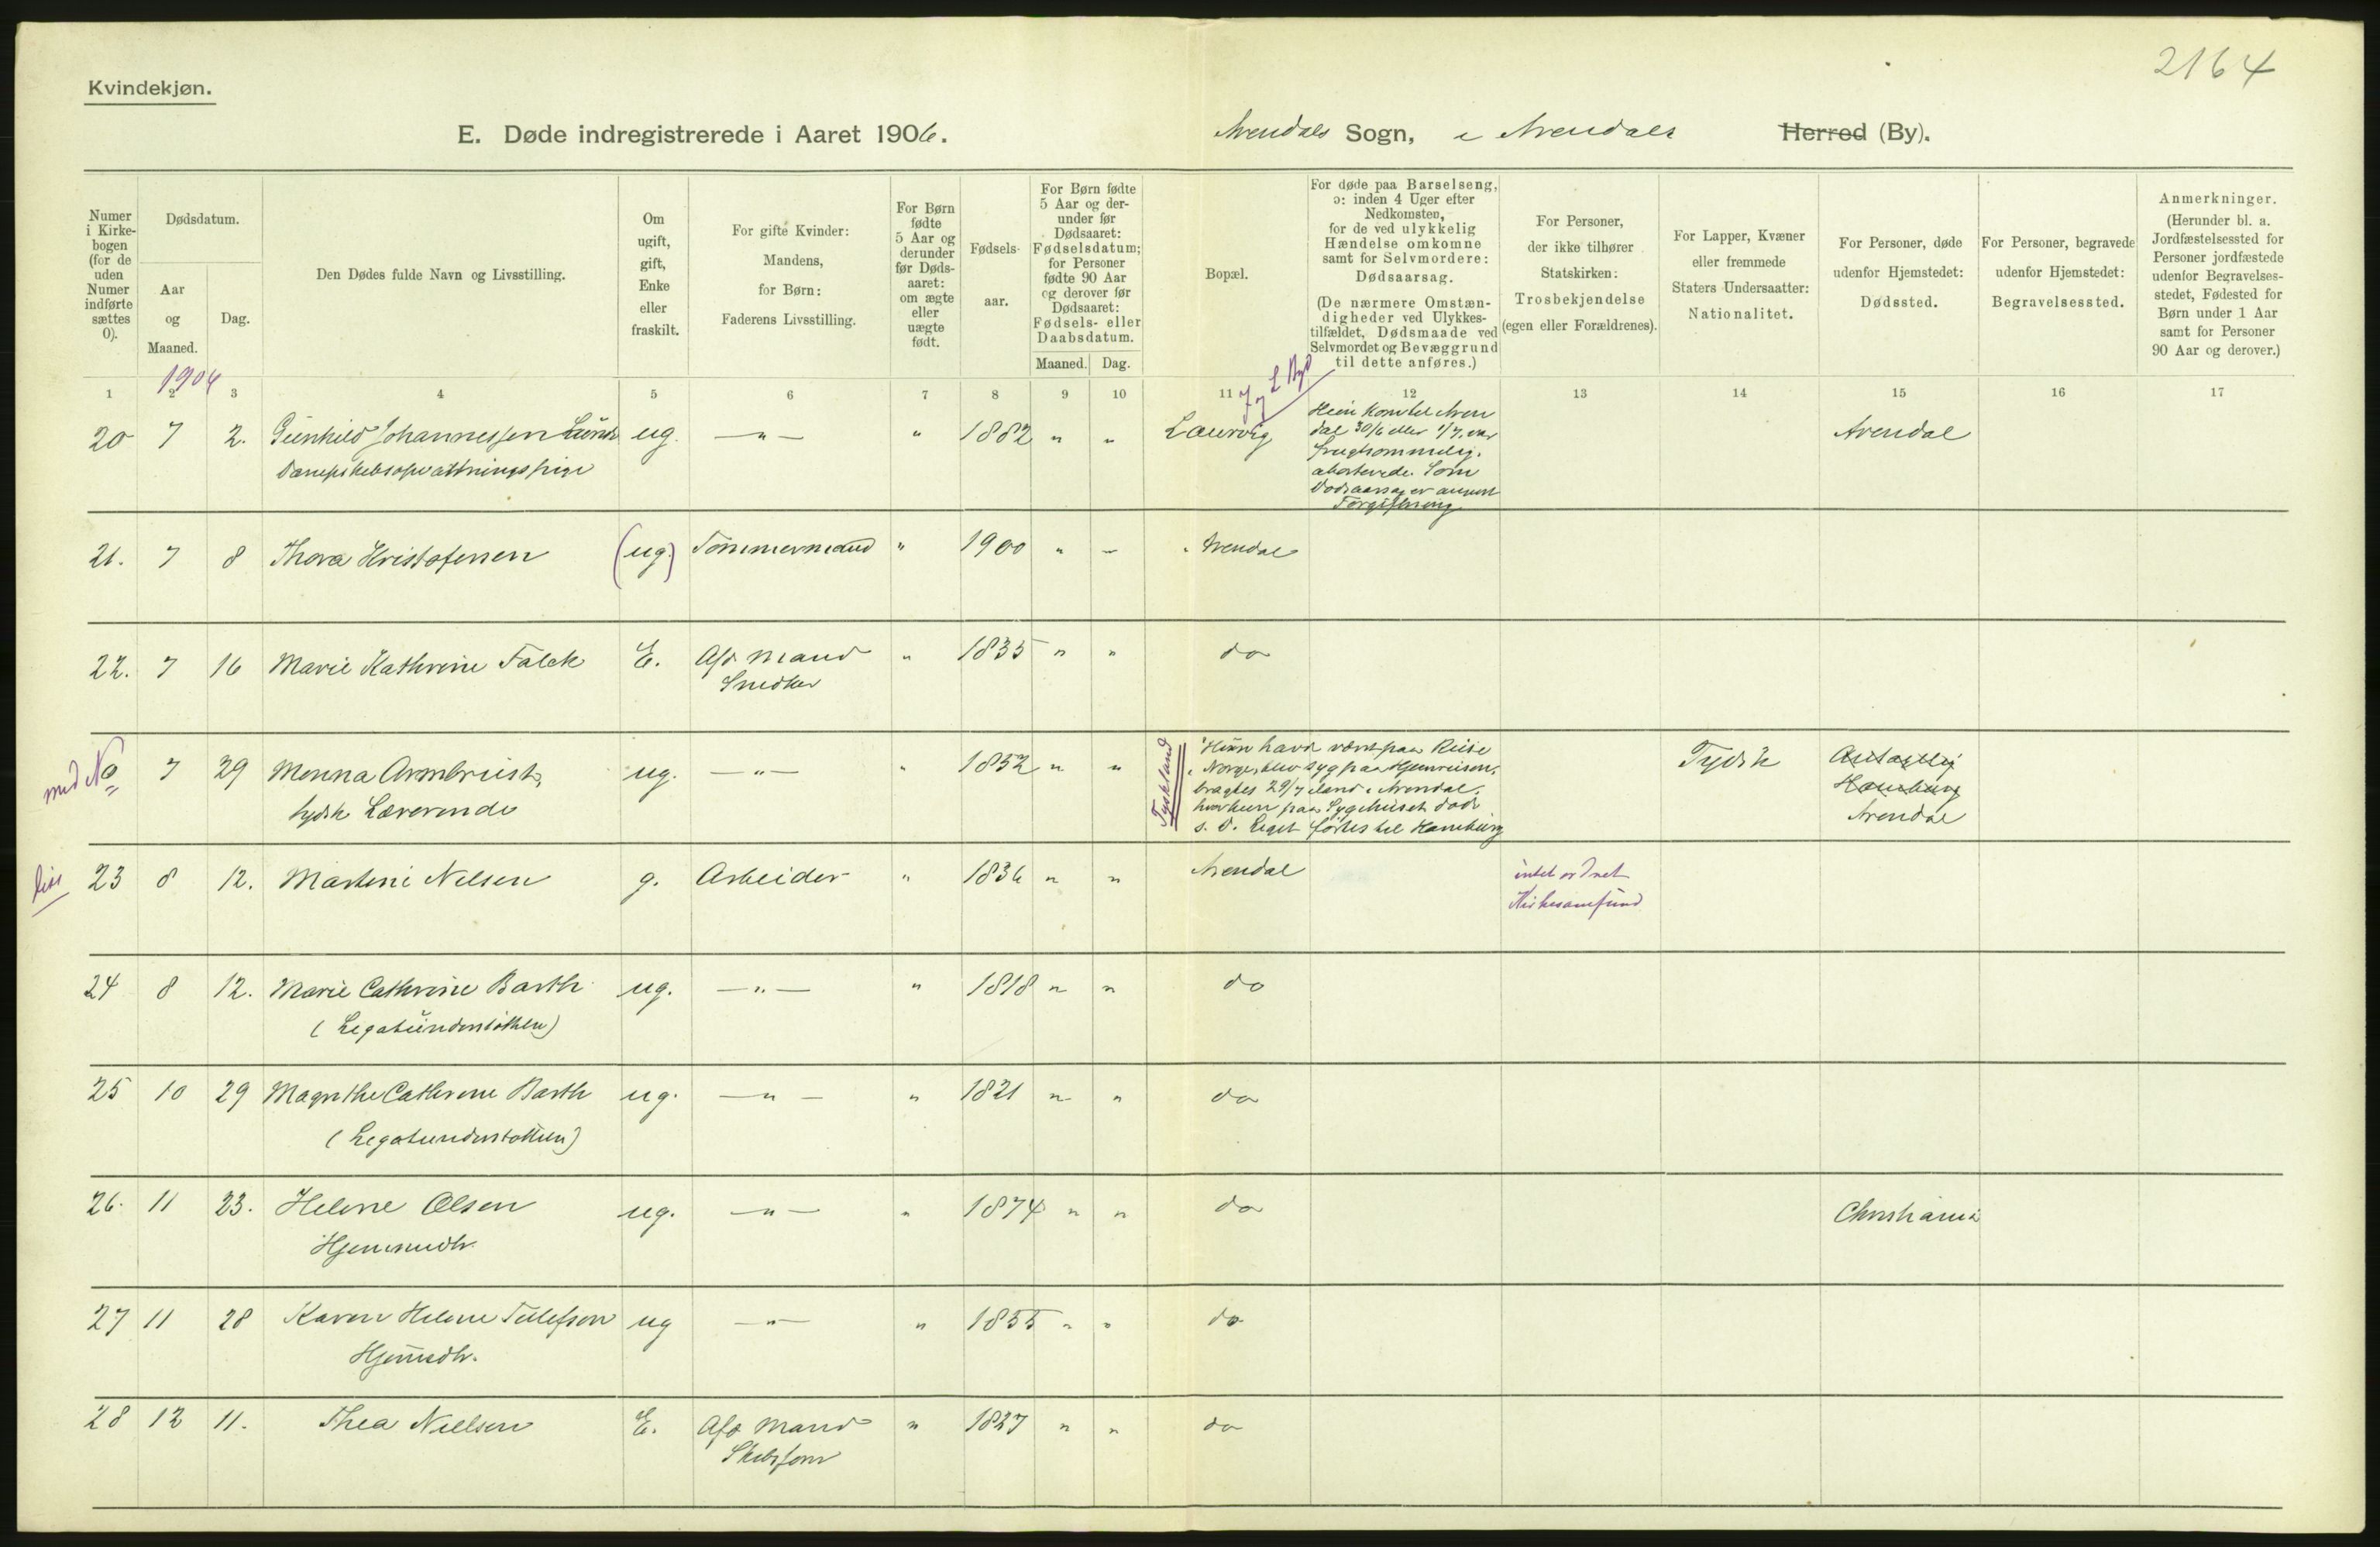 2164
Kvindekjøn.
E. Døde indregistrerede i Aaret 1906. Arendals Sogn, i Arendals Herred (By).
Numer i Kirkebogen (for de uden Numer indførte sættes 0).
Dødsdatum.
Aar og Maaned.
Dag.
Den Dødes fulde Navn og Livsstilling.
Om ugift, gift, Enke eller fraskilt.
For gifte Kvinder: Mandens, for Børn: Faderens Livsstilling.
For Børn fødte 5 Aar og derunder før Dødsaaret: om ægte eller uægte født.
Fødselsaar.
For Børn fødte 5 Aar og derunder før Dødsaaret: Fødselsdatum; for Personer fødte 90 Aar og derover før Dødsaaret: Fødsels- eller Daabsdatum.
Maaned. Dag.
Bopæl.
For døde paa Barselseng, ɔ: inden 4 Uger efter Nedkomsten, for de ved ulykkelig Hændelse omkomne samt for Selvmordere: Dødsaarsag.
(De nærmere Omstændigheder ved Ulykkestilfældet, Dødsmaade ved Selvmordet og Bevæggrund til dette anføres.)
For Personer, der ikke tilhører Statskirken: Trosbekjendelse (egen eller Forældrenes).
For Lapper, Kvæner eller fremmede Staters Undersaatter: Nationalitet.
For Personer, døde udenfor Hjemstedet: Dødssted.
For Personer, begravede udenfor Hjemstedet: Begravelsessted.
Anmerkninger. (Herunder bl. a. Jordfæstelsessted for Personer jordfæstede udenfor Begravelsesstedet, Fødested for Børn under 1 Aar samt for Personer 90 Aar og derover.)
1906
1 2 3 4 5 6 7 8 9 10 11 12 13 14 15 16 17
20 7 2. Gunhild Johannessen Lunde ug. —„— „ 1882 „ „ Laurvig Arendal
Dampskibsopvartningspige
Hun kom til Aren
dal 30/6 eller 1/7, var
frugtsommelig,
aborterede. Som
Dødsaarsag er anført
Forgiftning
21. 7 8 Thora Kristofersen (ug.) Tømmermand „ 1900 „ „ Arendal
22. 7 16 Marie Kathrine Falck E. Afd. Mand „ 1835 „ „ do
Snedker
med No 7 29 Menna Armbrust, ug. —„— „ 1852 „ „ Tydsk Antagelig
tydsk Lærerinde Hamburg
Arendal
Tyskland
Hun havde vært paa Reise
i Norge, blev syg paa Hjemreisen,
bragtes 29/7 iland i Arendal,
hvor hun paa Sygehuset døde
s. D. Liget førtes til Hamburg
diss 23 8 12. Martine Nelsen g. Arbeider „ 1836 „ „ Arendal intet ordnet
Kirkesamfund
24 8 12. Marie Cathrine Barth ug. —„— „ 1818 „ „ do
(Legatunderstøttet)
25 10 29 Magrethe Cathrine Barth ug. —„— „ 1821 „ „ do
(Legatunderstøttet)
26. 11 23. Helene Olsen ug. —„— „ 1874 „ „ do Christiania
Hjemmedtr.
27 11 28 Karen Helene Tellefsen ug —„— „ 1855 „ „ do
Hjemmedtr.
28 12 11. Thea Nielsen E. Afd. Mand „ 1827 „ „ do
Skibstøm